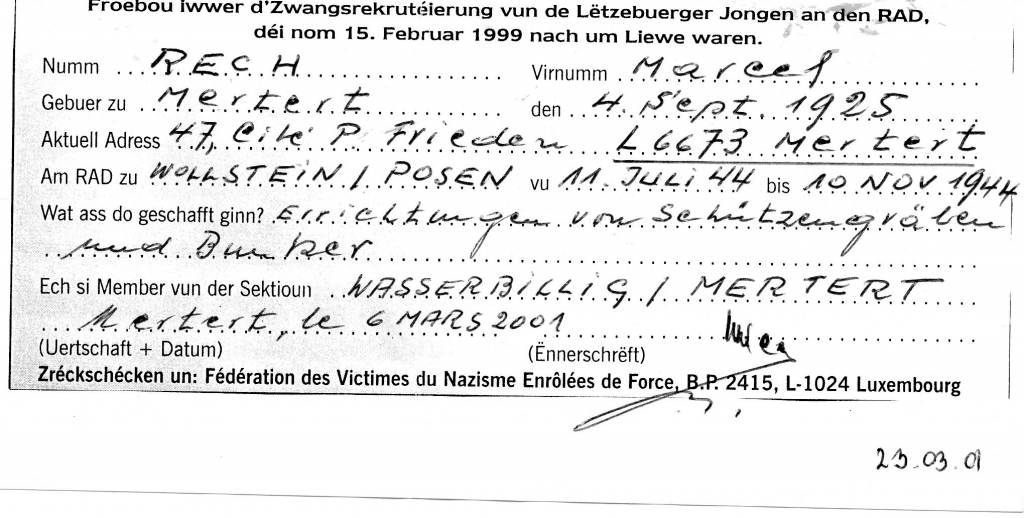 Froebou iwwer d'Zwangsrekrutéierung vun de Lëtzebuerger Jongen an den RAD,
déi nom 15. Februar 1999 nach um Liewe waren.
Numm RECH Virnumm Marcel
Gebuer zu Mertert den 4. Sept. 1925
Aktuell Adress 47, Cité P. Frieden L 6673 Mertert
Am RAD zu WOLLSTEIN / POSEN vu 11. JULI 44 bis 10 NOV. 1944
Wat ass do geschafft ginn? Errichtungen von Schützengräben
und Bunker
Ech si Member vun der Sektioun WASSERBILLIG / MERTERT
Mertert, le 6 MARS 2001
(Uertschaft + Datum) (Ënnerschrëft)
Zréckschécken un: Fédération des Victimes du Nazisme Enrôlées de Force, B.P. 2415, L-1024 Luxembourg
23.03.01